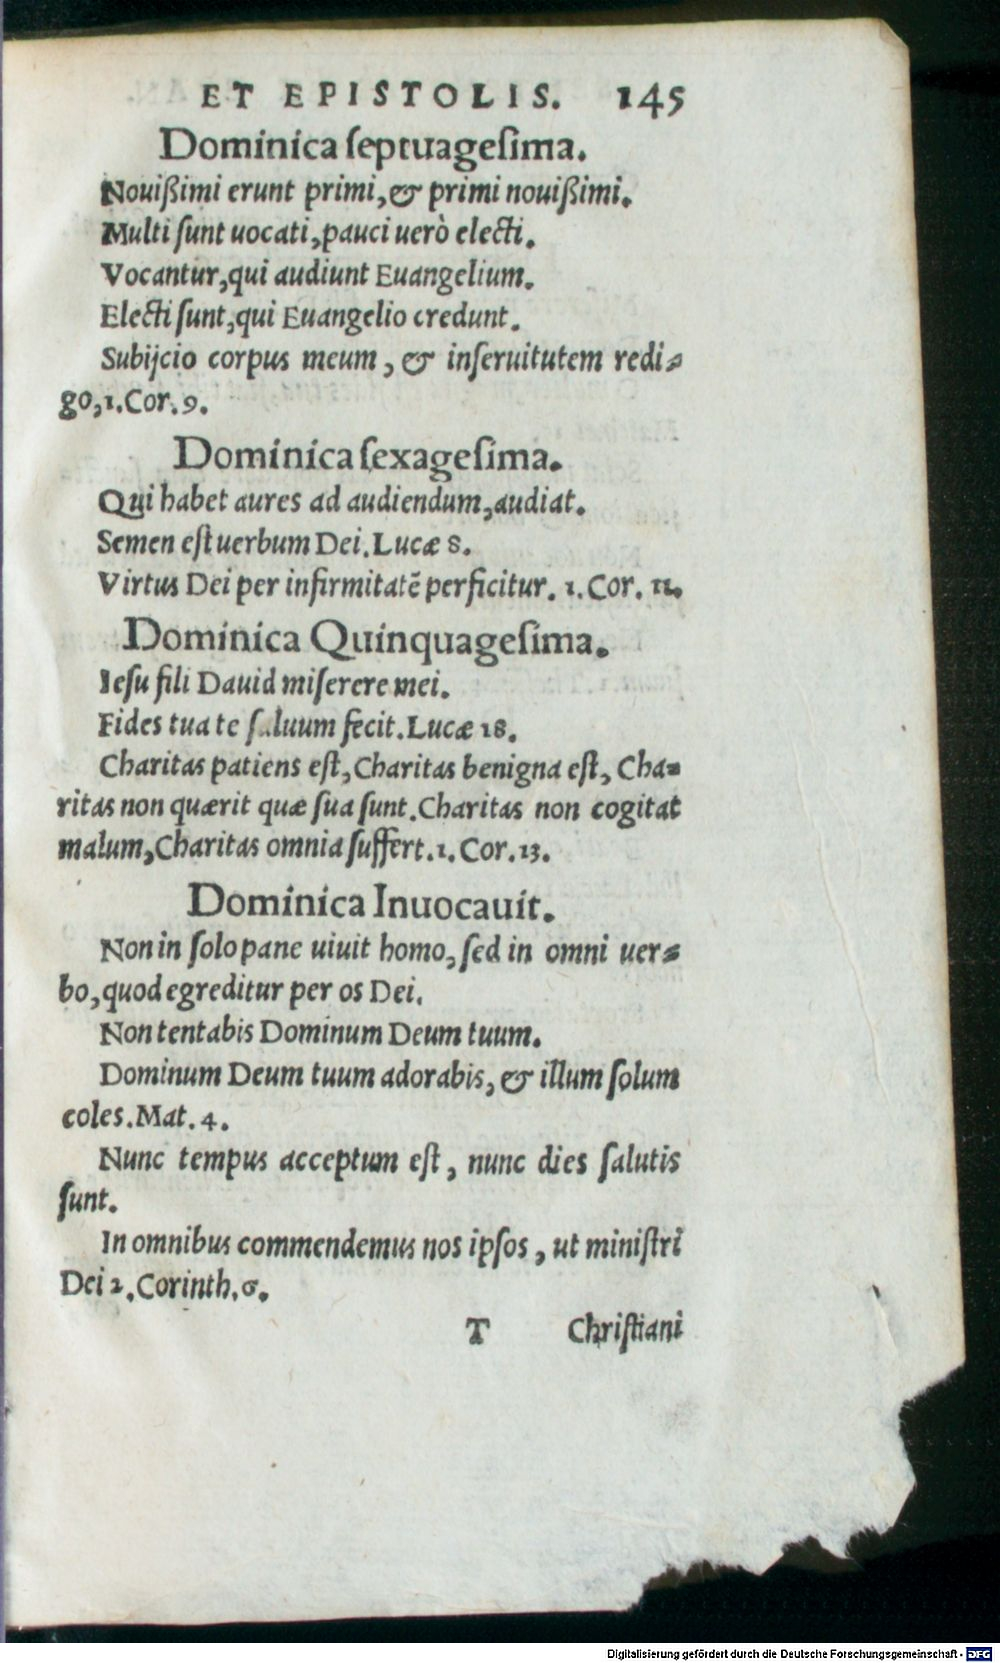 ET EPISTOLIS. 145
Dominica ſeptuagesima.
Nouißimi erunt primi, & primi nouißimi.
Multi ſunt uocati, pauci uerò electi.
Vocantur, qui audiunt Euangelium.
Electi ſunt, qui Euangelio credunt.
Subijcio corpus meum, & inſeruitutem redi-
go, 1. Cor. 9.
Dominica ſexageſima.
Qui habet aures ad audiendum, audiat.
Semen eſt uerbum Dei. Lucæ 8.
Virtus Dei per infirmitatē perficitur. 1. Cor. 11.
Dominica Quinquageſima.
Ieſu fili Dauid miſerere mei.
Fides tua te ſaluum fecit. Lucæ 18.
Charitas patiens eſt, Charitas benigna eſt, Cha-
ritas non quærit quæ ſua ſunt. Charitas non cogitat
malum, Charitas omnia ſuffert. 1. Cor. 13.
Dominica Inuocauit.
Non in ſolo pane uiuit homo, ſed in omni uer-
bo, quod egreditur per os Dei.
Non tentabis Dominum Deum tuum.
Dominum Deum tuum adorabis, & illum ſolum
coles. Mat. 4.
Nunc tempus acceptum eſt, nunc dies ſalutis
ſunt.
In omnibus commendemus nos ipſos, ut miniſtri
Dei 2. Corinth. 6.
T Chriſtiani
Digitalisierung gefördert durch die Deutsche Forschungsgemeinschaft - DFG